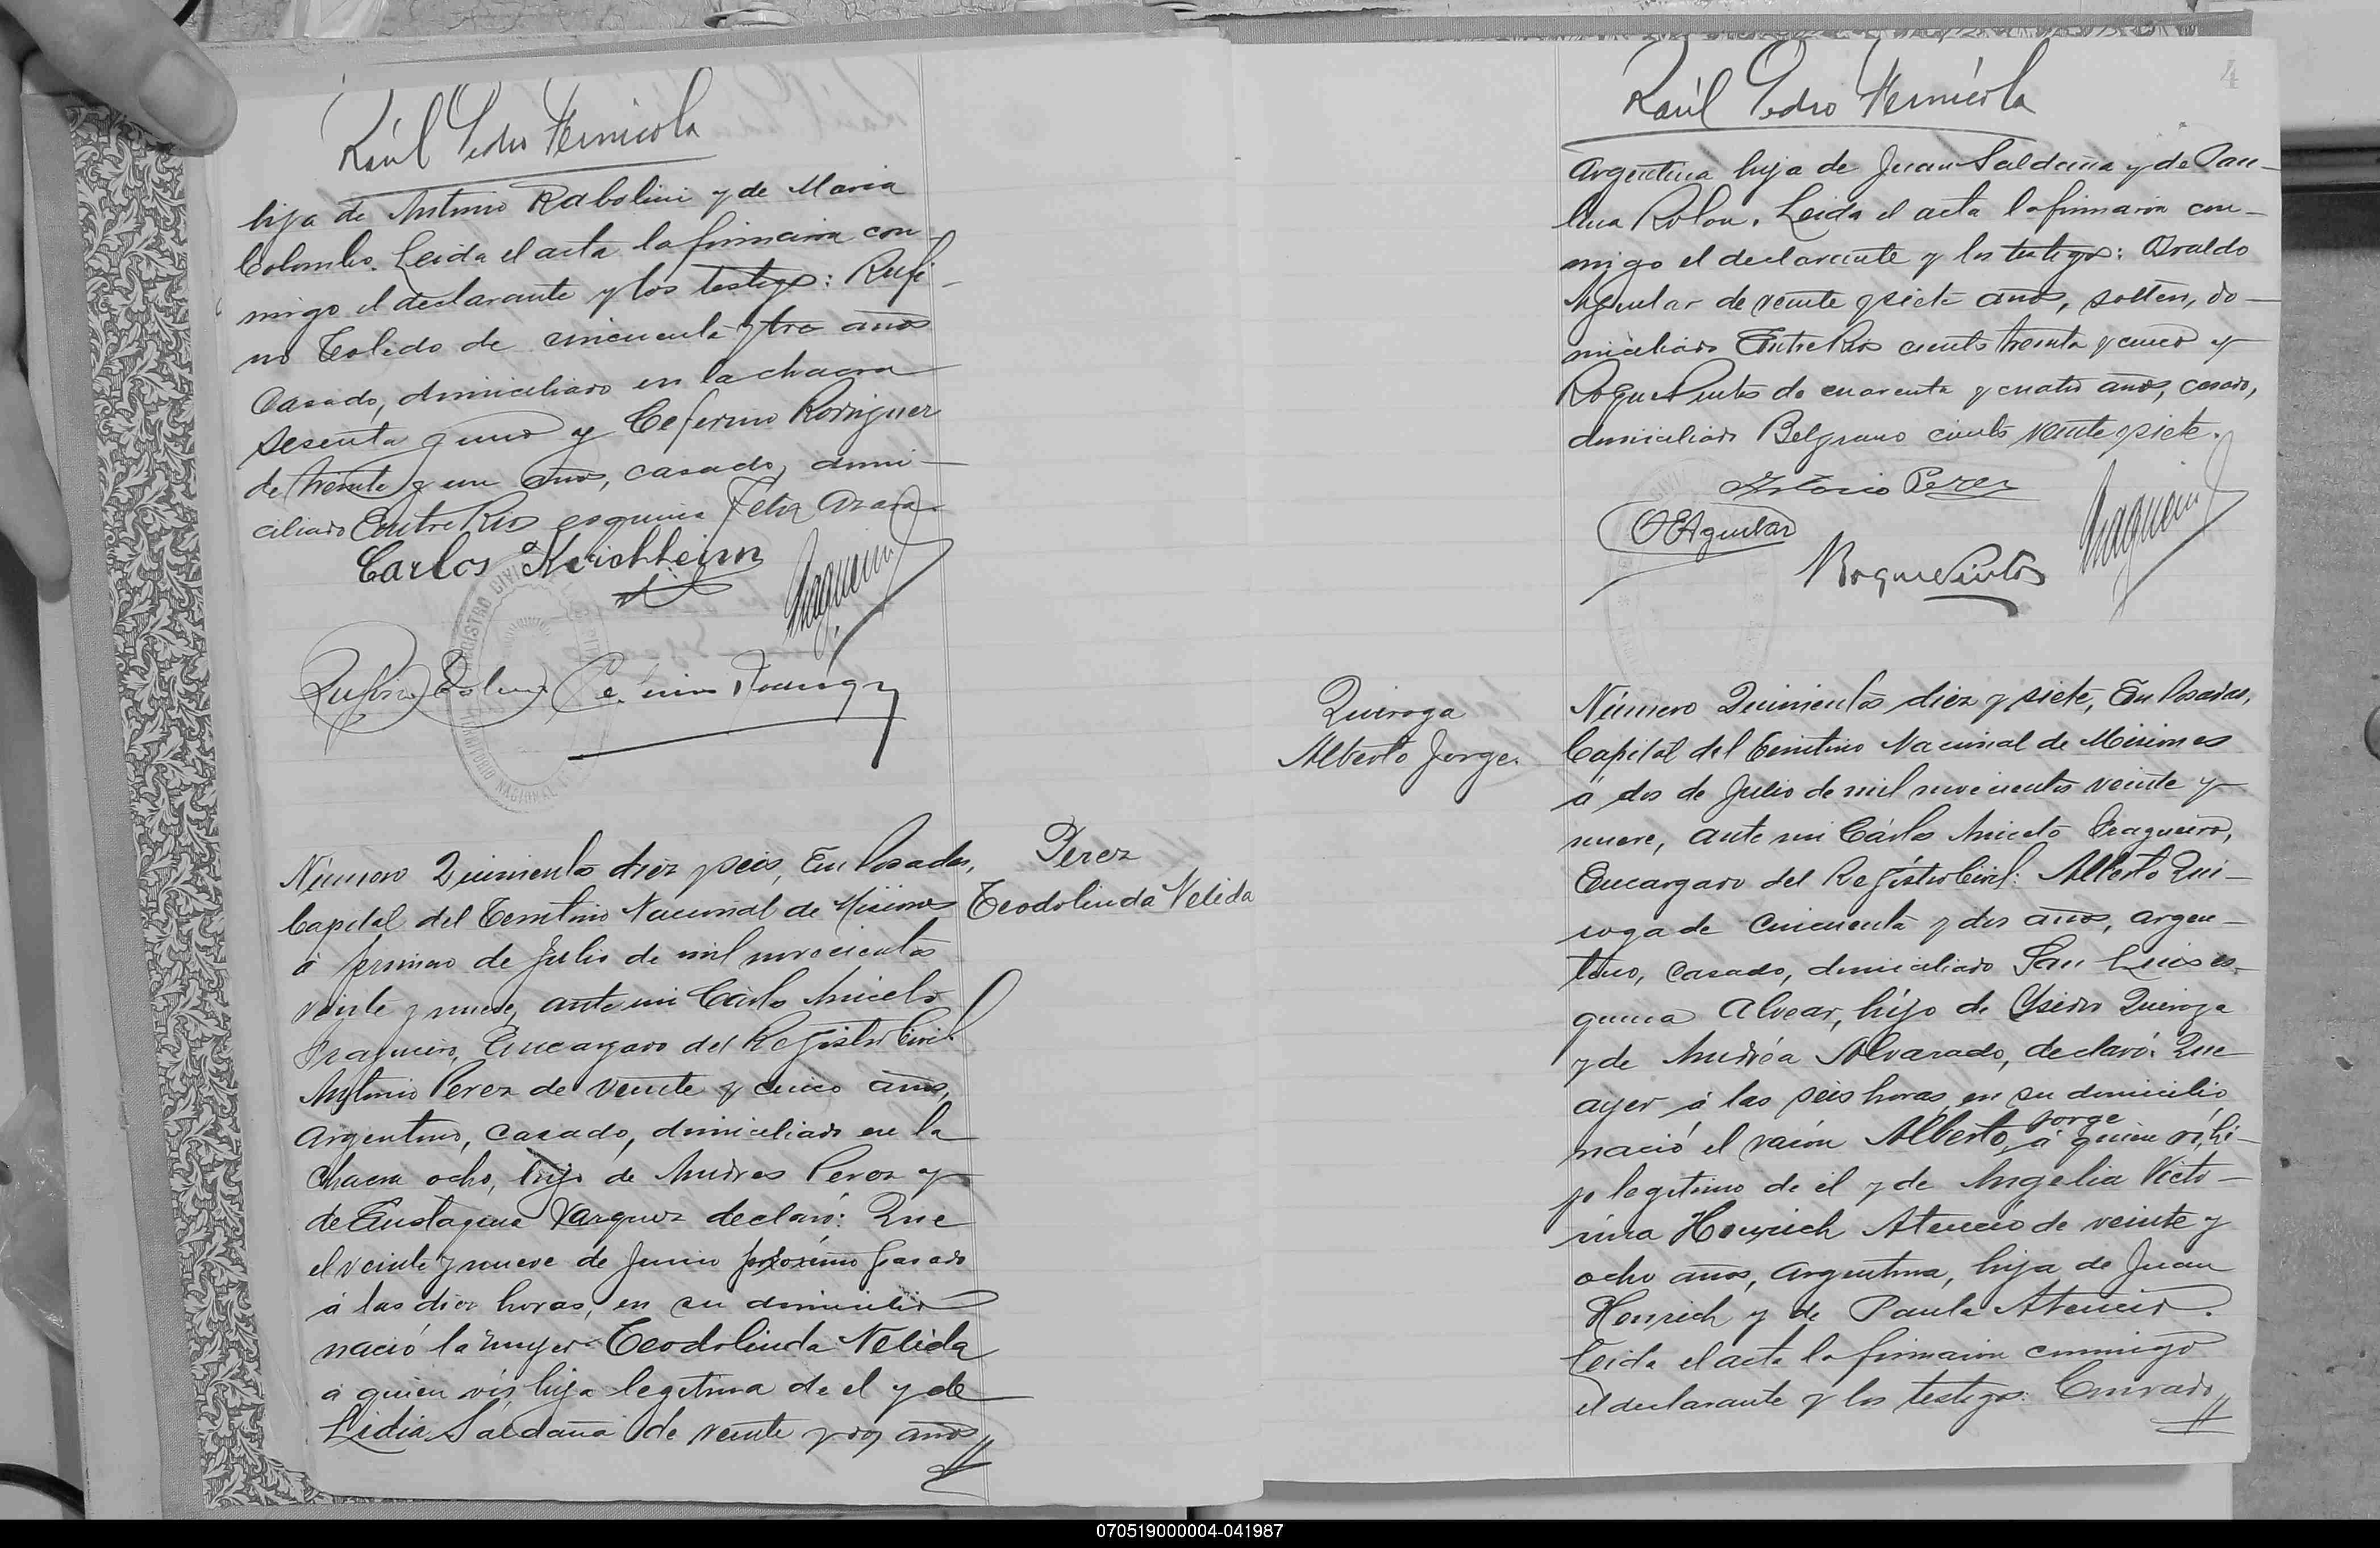 Raúl Pedro Vernicola
hija de Antonio Rabolini y de Maria
Colombo. Leida el acta la firmaron con-
migo el declarante y los testigos: Rufi-
no Toledo de cincuenta y tres años
casado, domiciliado en la chacra
sesenta y uno y Ceferino Rodriguez
de treinta y un años, casado, domi-
ciliado Entre Rios esquina Felix Azara
Carlos Kirchheim
Fragueiro
Rufino Toledo Ceferino Rodriguez
REGISTRO CIVIL
NACIONAL
Número Quinientos diez y seis, En Posadas,
Capital del Territorio Nacional de Misiones
á primero de Julio de mil novecientos
veinte y nueve, ante mi Cárlos Aniceto
Fragueiro, Encargado del Registro Civil
Antonio Perez de veinte y cinco años,
argentino, casado, domiciliado en la
chacra ocho, hijo de Andres Perez y
de Eustaquia Vazquez declaró: Que
el veinte y nueve de Junio próximo pasado
á las diez horas, en su domicilio
nació la mujer Teodolinda Nelida
á quien ví, hija legitima de el y de
Lidia Saldaña de veinte y dos años
Perez
Teodolinda Nelida
4
Raúl Pedro Vernicola
argentina hija de Juan Saldaña y de Pau-
lina Rolon. Leida el acta la firmaron con-
migo el declarante y los testigos: Osvaldo
Aguilar de veinte y siete años, soltero, do-
miciliado Entre Rios ciento treinta y cinco y
Roque Pinto de cuarenta y cuatro años, casado,
domiciliado Belgrano ciento veinte y siete.
Antonio Perez
OEAguilar
Roque Pinto
Fragueiro
Quiroga
Alberto Jorge.
Número Quinientos diez y siete, En Posadas,
Capital del Territorio Nacional de Misiones
á dos de Julio de mil novecientos veinte y
nueve, ante mi Cárlos Aniceto Fragueiro,
Encargado del Registro Civil: Alberto Qui-
roga de cincuenta y dos años, argen-
tino, casado, domiciliado San Luis es-
quina Alvear, hijo de Ysidro Quiroga
y de Andréa Alvarado, declaró: Que
ayer á las seis horas en su domicilio
nació el varón Alberto Jorge á quien ví, hi-
jo legitimo de él y de Angelia Victo-
rina Henrich Atencio de veinte y
ocho años, argentina, hija de Juan
Henrich y de Paula Atencio.
Leida el acta la firmaron conmigo
el declarante y los testigos: Conrado
070519000004-041987